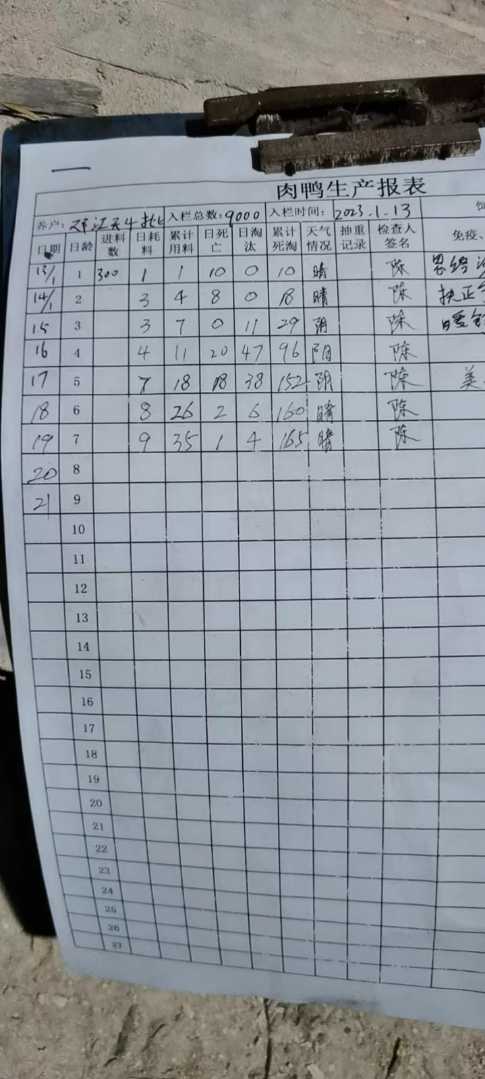 肉鸭生产报表
养户: 入栏总数:9000 入栏时间:2023.1.13
日期 日龄 进料数 日耗料 累计用料 日死亡 日淘汰 累计死淘 天气情况 抽重记录 检查人签名 免疫、
13/1 1 300 1 1 10 0 10 晴 陈
14/1 2 3 4 8 0 18 晴 陈 扶正
15 3 3 7 0 11 29 阴 陈
16 4 4 11 20 47 96 阴 陈
17 5 7 18 18 38 152 阴 陈 美
18 6 8 26 2 6 160 晴 陈
19 7 9 35 1 4 165 晴 陈
20 8
21 9
10
11
12
13
14
15
16
17
18
19
20
21
22
23
24
25
26
27